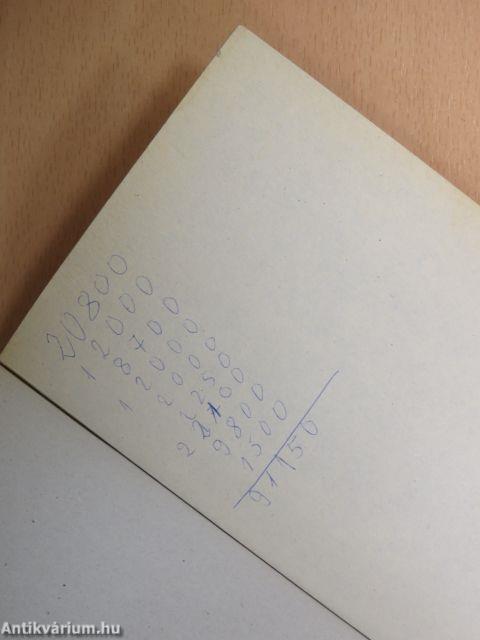 20800
12000
8700
12000
2000
2250
22100
9800
1500
91150
Antikvárium.hu